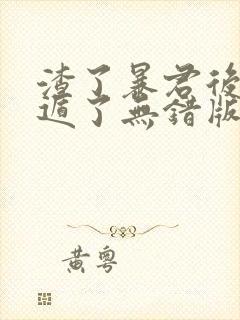 渣了暴君後
遁了無錯版
黃粵